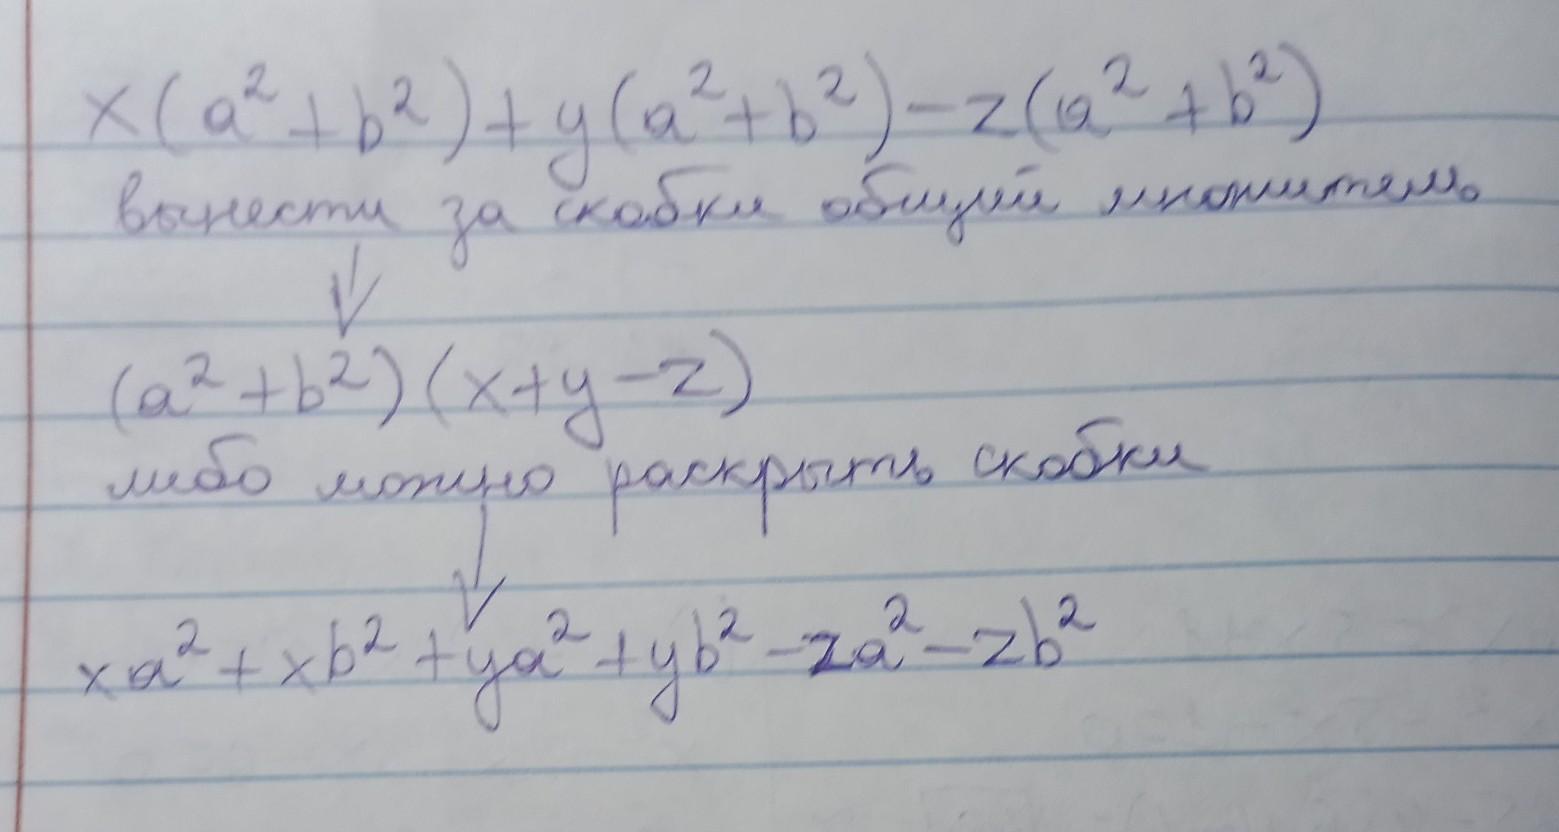 x(a²+b²)+y(a²+b²)-z(a²+b²)
вынести за скобки общий множитель
(a²+b²)(x+y-z)
либо можно раскрыть скобки
xa²+xb²+ya²+yb²-za²-zb²